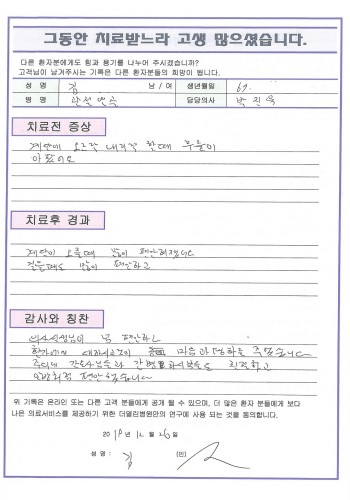 그동안 치료받느라 고생 많으셨습니다.
다른 환자분에게도 힘과 용기를 나누어 주시겠습니까?
고객님이 남겨주시는 기록은 다른 환자분들의 희망이 됩니다.
성 명 김 남 / 여 생년월일 67.
병 명 담당의사 박진욱
치료전 증상
계단에 오르락 내리락 할때 무릎이
아팠어요
치료후 경과
계단이 오를때 많이 편안해졌습니다
걸을때도 많이 편안하고
감사와 칭찬
의사선생님이 넘 편안하고
마음과 편하를 주셨습니다
간호사님들과 친절하고
위 기록은 온라인 또는 다른 고객 분들에게 공개 될 수 있으며, 더 많은 환자 분들에게 보다
나은 의료서비스를 제공하기 위한 더열린병원만의 연구에 사용 되는 것을 동의합니다.
2019년 12월 26일
성 명 : 김 (인)